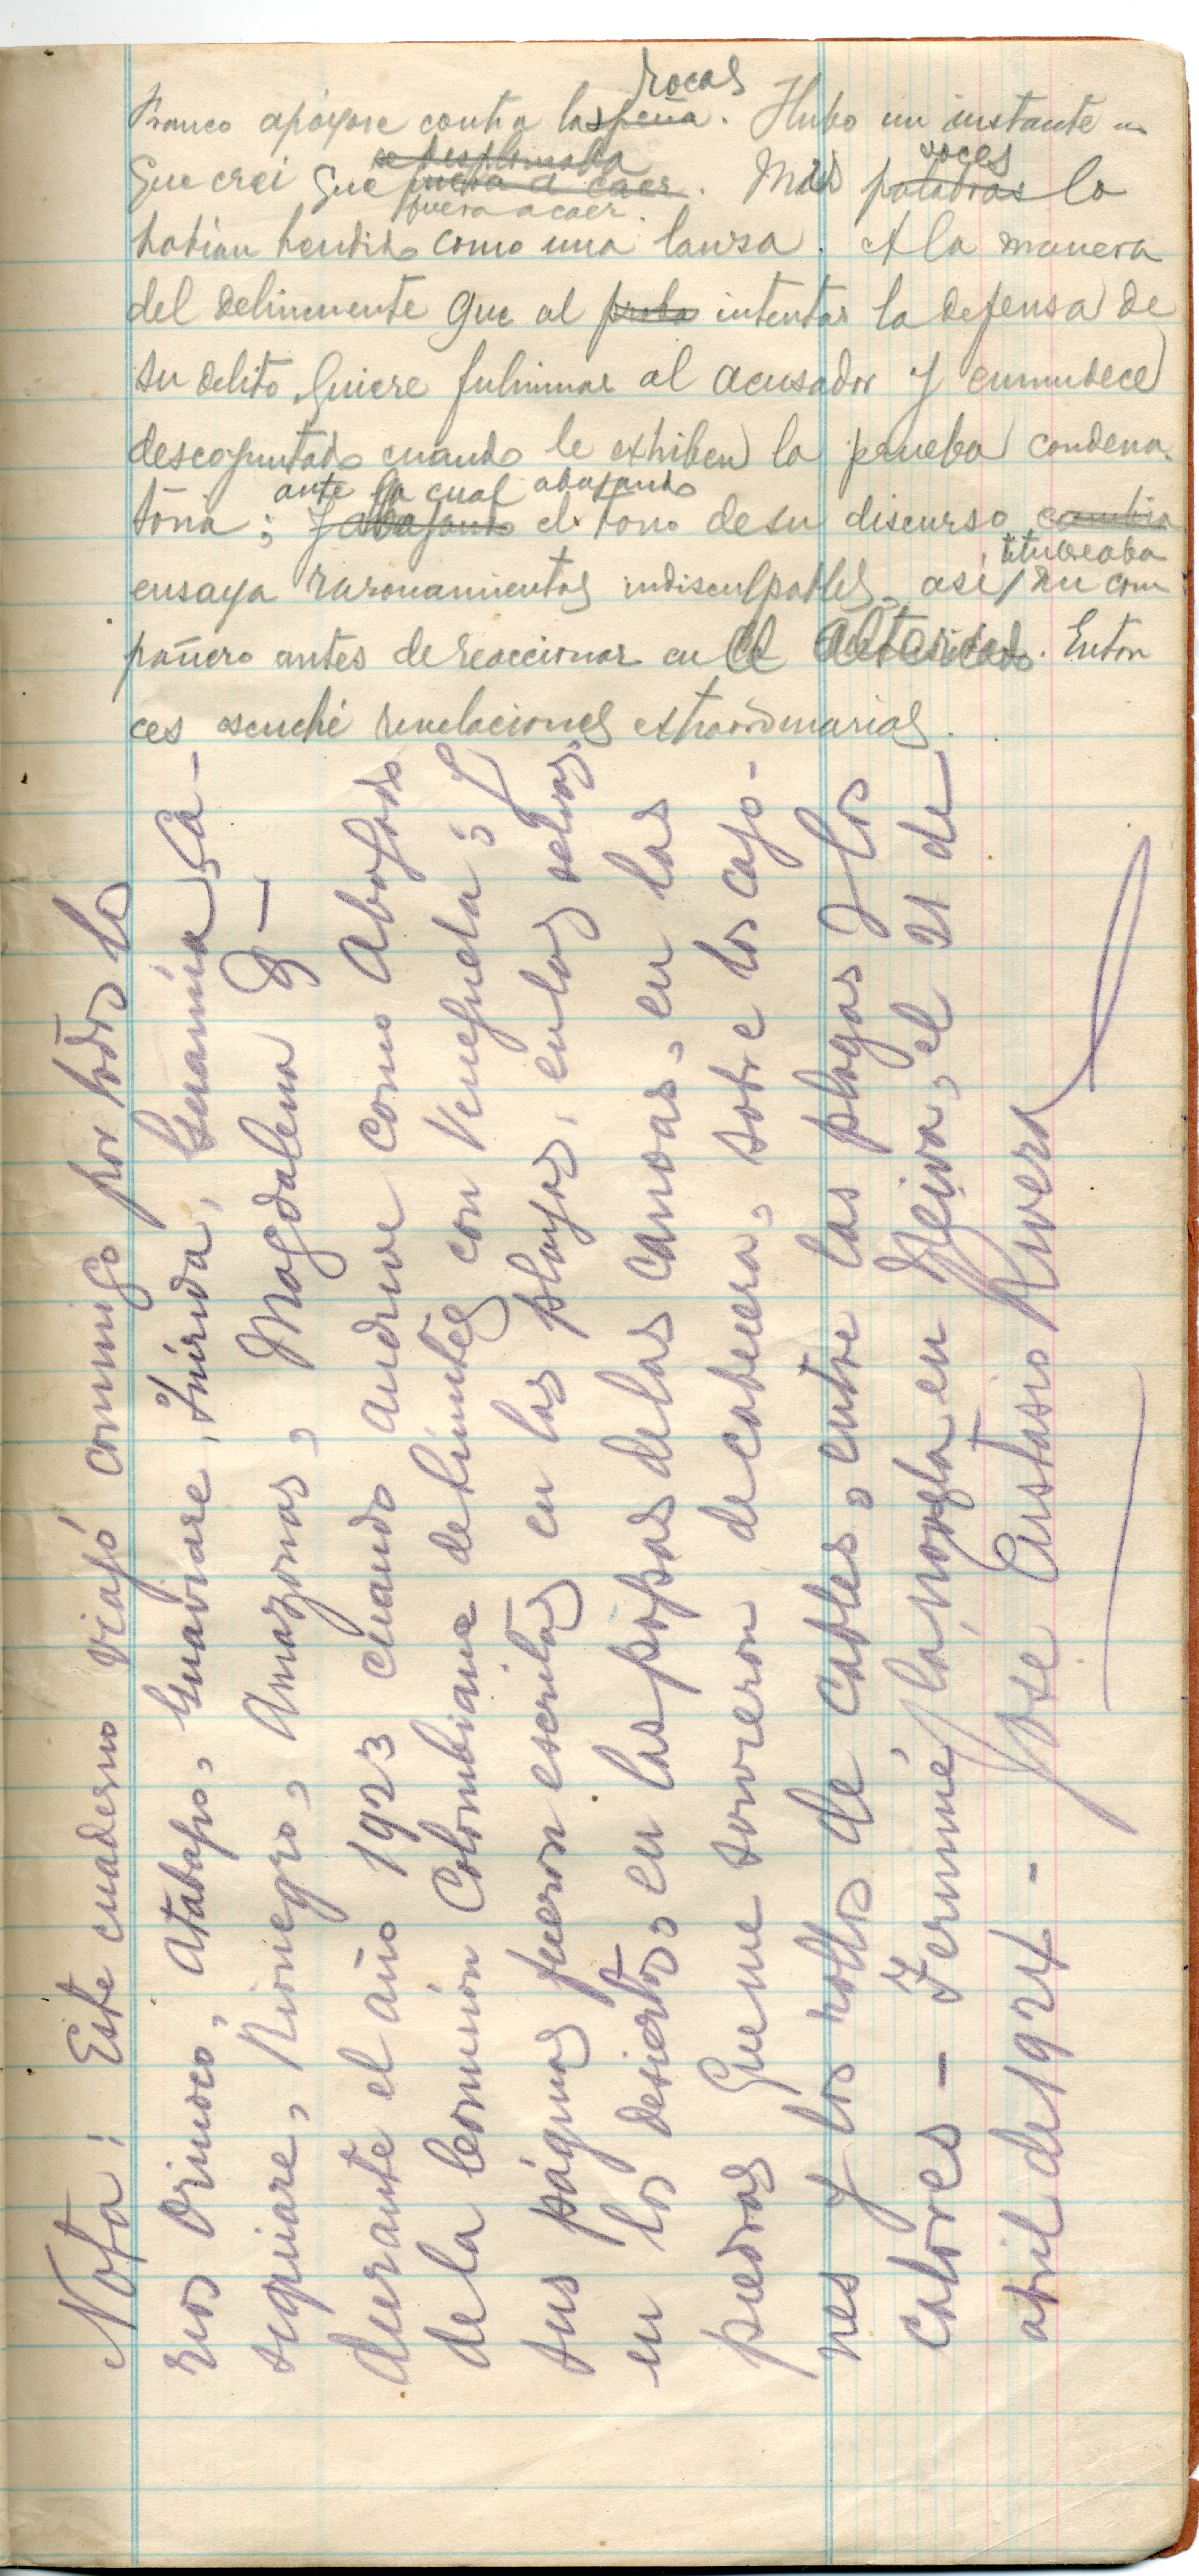 rocas
Franco apóyose contra las peña. Hubo un instante en
se desplomaba voces
que creí que fuera a caer. Mis palabras lo
fuera a caer.
habían hendido como una lanza. A la manera
del delincuente que al intentar la defensa de
su delito quiere fulminar al acusador y enmudece
descoyuntado cuando le exhiben la prueba condena-
ante la cual abajando
toria; y abajando el tono de su discurso cambia
titubeaba
ensaya razonamientos indisculpables, así mi com
pañero antes de reaccionar en el altercado. Enton
ces escuché revelaciones extraordinarias.
Nota: Este cuaderno viajó conmigo por todos lo
ríos Orinoco, Atabapo, Guaviare, Inírida, Guainía, Ca-
siquiare, Rionegro, Amazonas, Magdalena &—
durante el año 1923 cuando anduve como Abogado
de la Comisión Colombiana de Límites con Venezuela; y
sus páginas fueron escritas en las playas, en las selvas,
en los desiertos, en las popas de las canoas, en las
piedras que me sirvieron de cabecera, sobre los cajo-
nes y los rollos de cables, entre las plagas y los
calores - Terminé la novela en Neiva, el 21 de
abril de 1924 -
José Eustasio Rivera